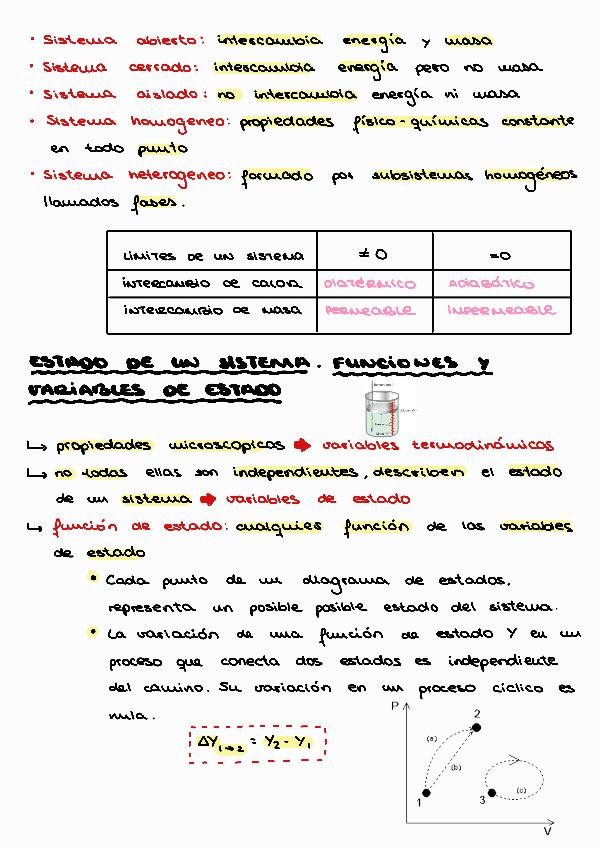 · Sistema abierto: intercambia energía y masa
· Sistema cerrado: intercambia energía pero no masa
· Sistema aislado: no intercambia energía ni masa
· Sistema homogeneo: propiedades físico-químicas constante
en todo punto
· Sistema heterogeneo: formado por subsistemas homogéneos
llamados fases.
LIMITES DE UN SISTEMA ≠ 0 =0
INTERCAMBIO DE CALOR DIATÉRMICO ADIABÁTICO
INTERCAMBIO DE MASA PERMEABLE IMPERMEABLE
ESTADO DE UN SISTEMA. FUNCIONES Y
VARIABLES DE ESTADO
↳ propiedades microscopicas ➡ variables termodinámicas
↳ no todas ellas son independientes, describen el estado
de un sistema ➡ variables de estado
↳ función de estado: cualquier función de las variables
de estado
• Cada punto de un diagrama de estados,
representa un posible posible estado del sistema.
• La variación de una función de estado Y en un
proceso que conecta dos estados es independiente
del camino. Su variación en un proceso cíclico es
nula.
ΔY1→2 = Y2 - Y1
P
2
(a)
(b)
1
3
(c)
V